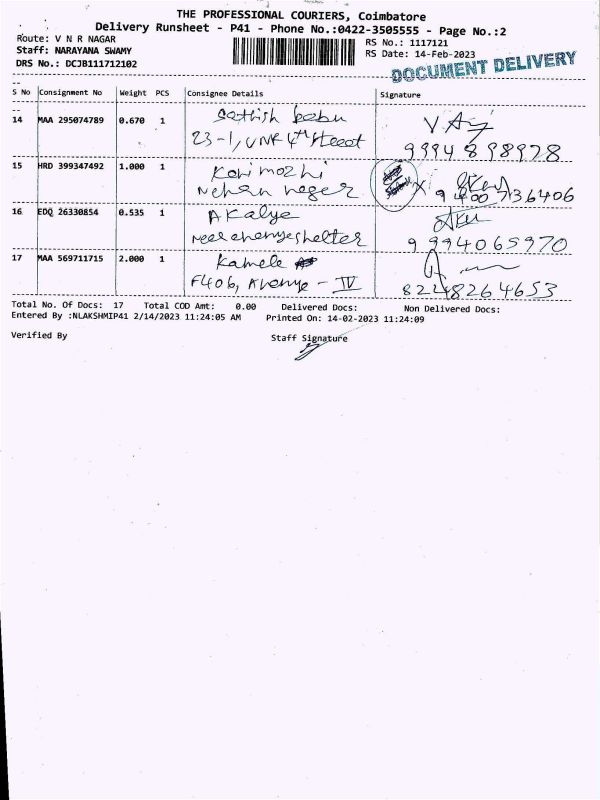 THE PROFESSIONAL COURIERS, Coimbatore
Delivery Runsheet - P41 - Phone No.:0422-3505555 - Page No.:2
Route: V N R NAGAR
RS No.: 1117121
Staff: NARAYANA SWAMY
RS Date: 14-Feb-2023
DRS No.: DCJB111712102
DOCUMENT DELIVERY
S No Consignment No Weight PCS Consignee Details Signature
14 MAA 295074789 0.670 1 Sathish babu
23-1, VNR 4th street
9994898978
15 HRD 399347492 1.000 1 Kanimozhi
Nehru nager
9400736406
16 EDQ 26330854 0.535 1 A Kalye
9994065970
17 MAA 569711715 2.000 1 Kamele
F406, Avenye - IV
Total No. Of Docs: 17 Total COD Amt: 0.00 Delivered Docs: Non Delivered Docs:
Entered By :NLAKSHMIP41 2/14/2023 11:24:05 AM Printed On: 14-02-2023 11:24:09
Verified By Staff Signature